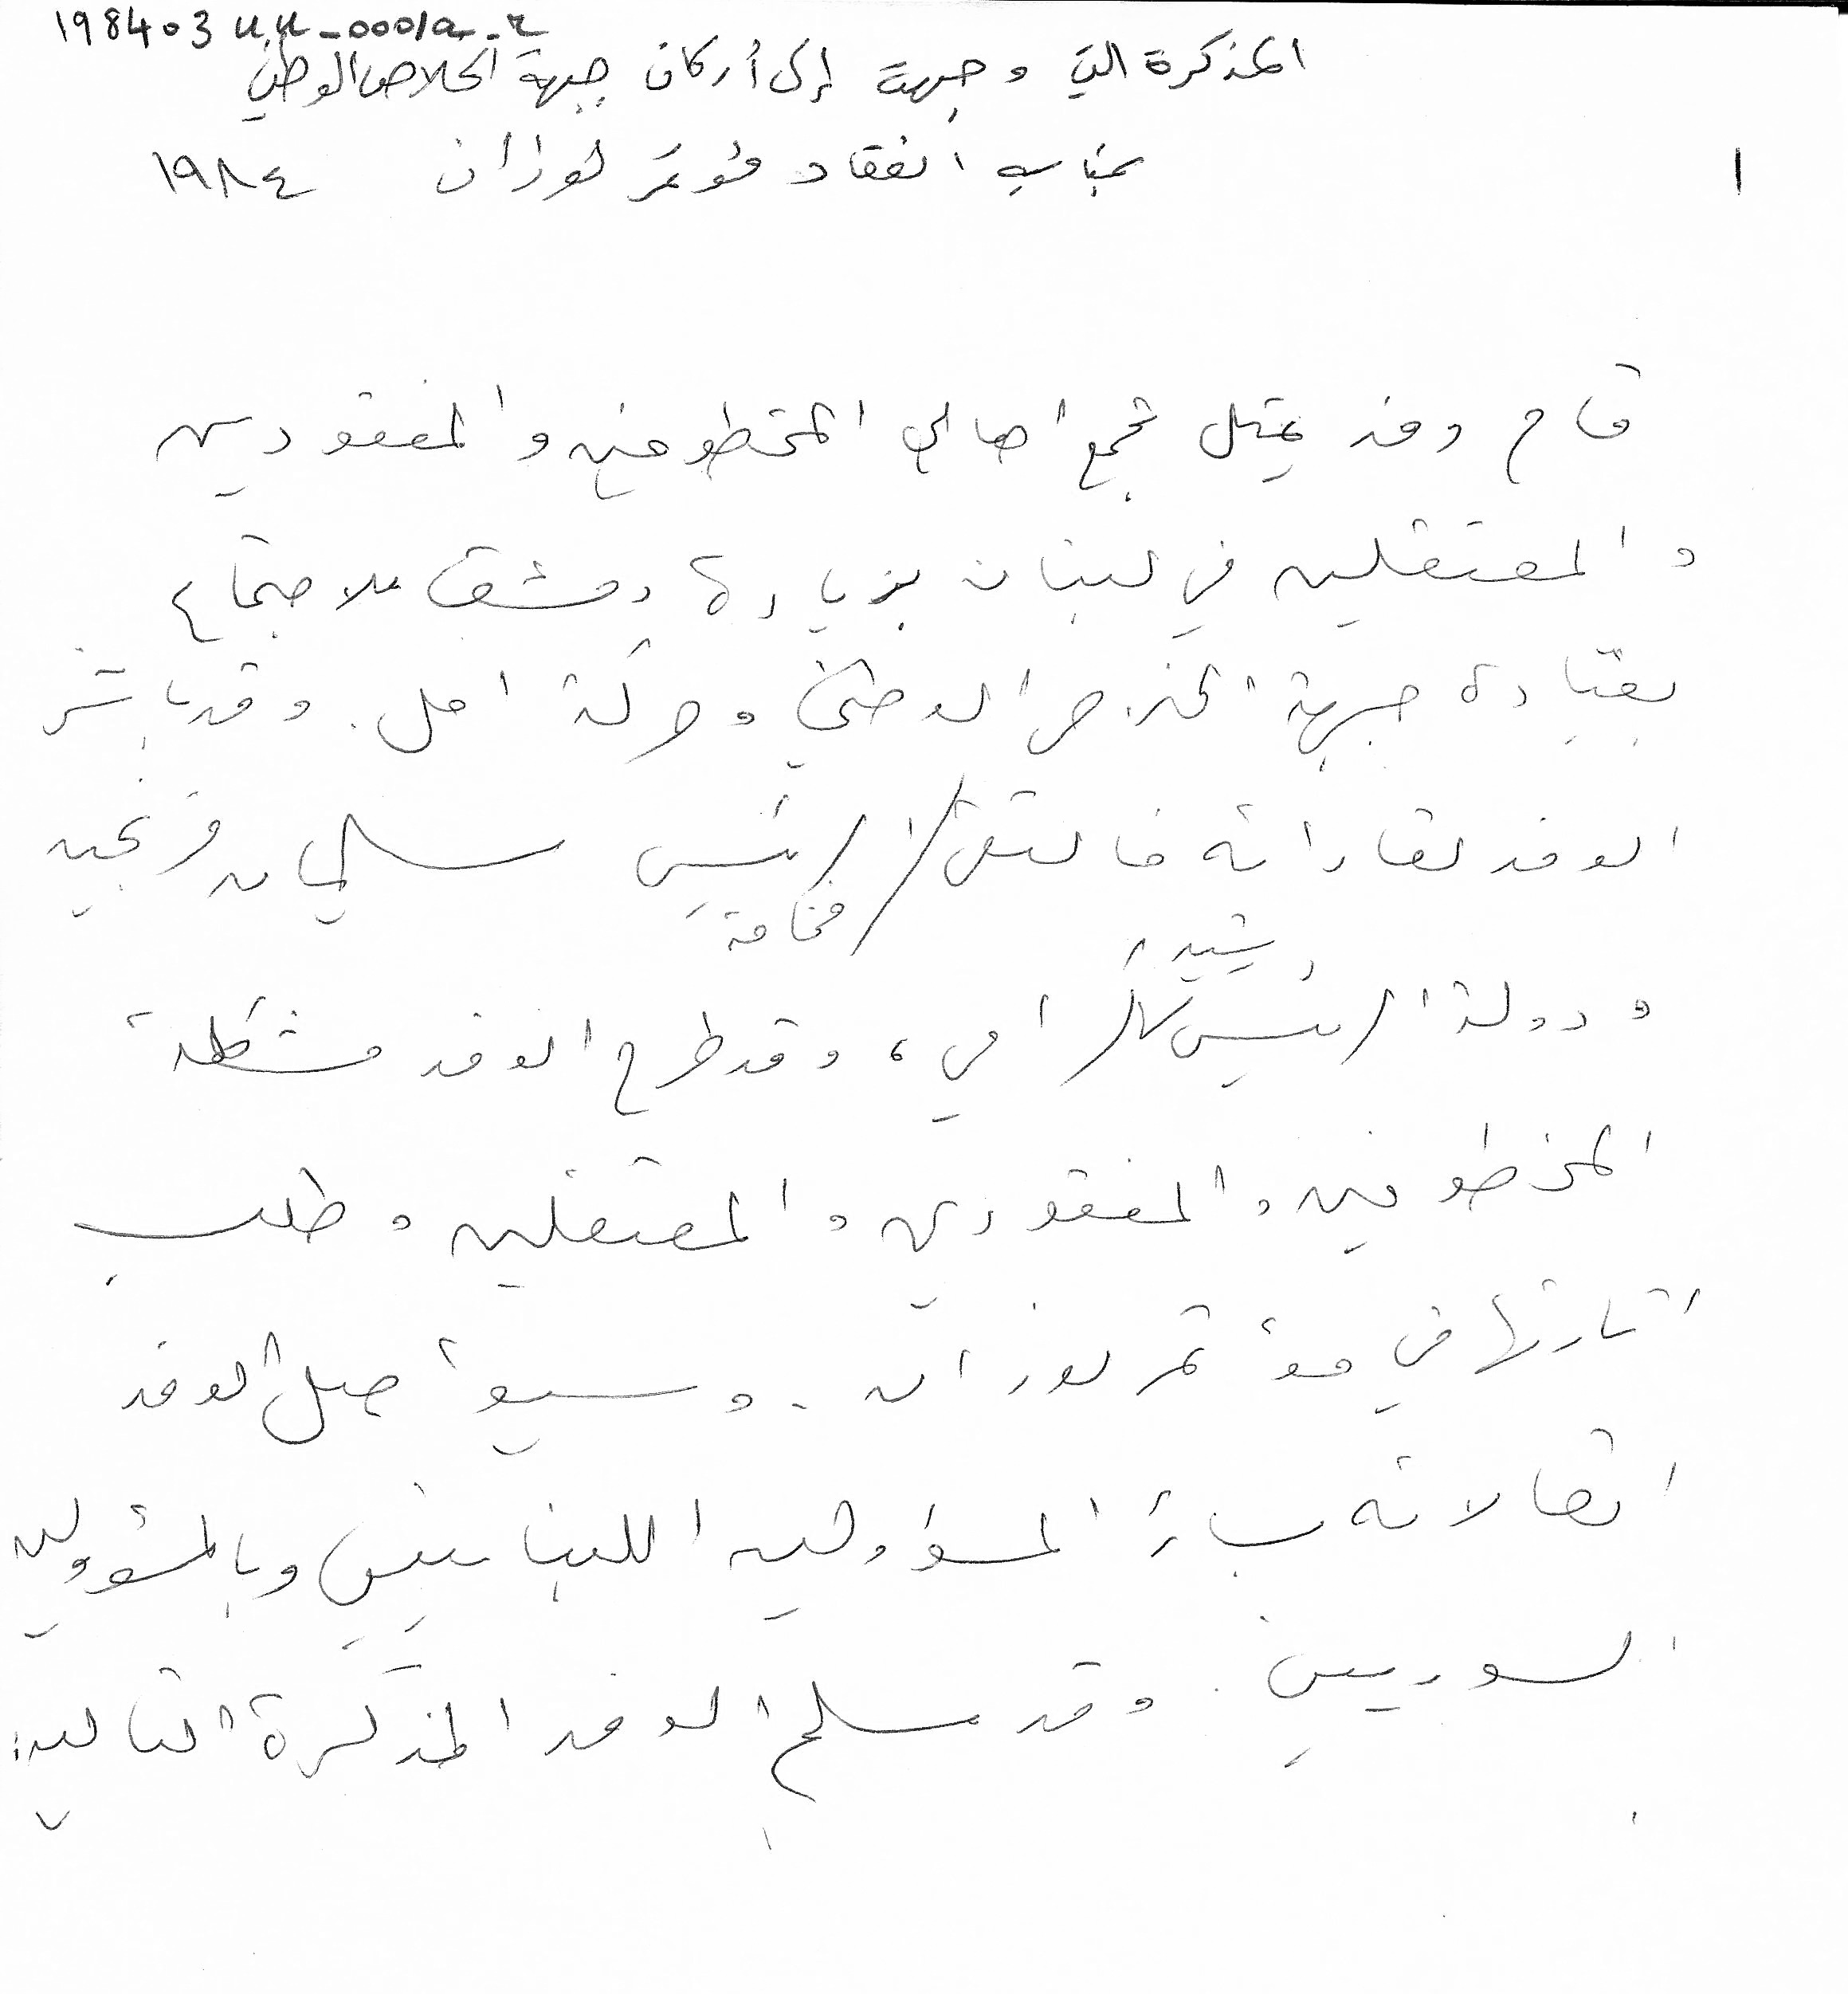 198403 u.u-0001a-r
المذكرة التي وجهت إلى أركان جبهة الخلاص الوطني
بمناسبة انعقاد مؤتمر لوزان ١٩٨٤
١
قام وفد يمثل تجمع اهالي المخطوفين والمفقودين
والمعتقلين في لبنان بزيارة دمشق للاجتماع
بقيادة جبهة الخلاص الوطني وحركة امل. وقد باشر
الوفد لقاءاته فالتقى / الرئيس سليمان فرنجيه
فخامة
رشيد
ودولة الرئيس كرامي، وقد طرح الوفد مشكلة
المخطوفين والمفقودين والمعتقلين وطلب
اثارتها في مؤتمر لوزان. وسيواصل الوفد
اتصالاته بسائر المسؤولين اللبنانيين وبالمسؤولين
السوريين. وقد سلم الوفد المذكرة التالية: